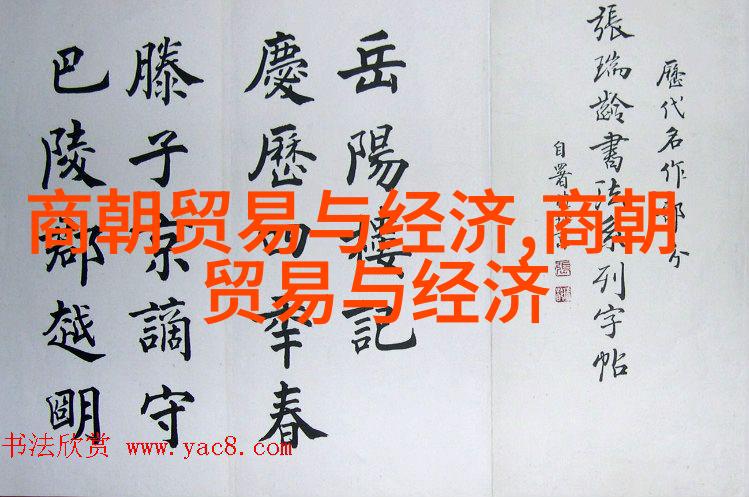 歷代名作部分
張瑞齡書法系列字帖
自署
岳陽樓記
慶歷四年春
滕子京謫守
巴陵郡越明
商朝贸易与经济,商朝
贸易与经济
书法欣赏 www.yac8.com